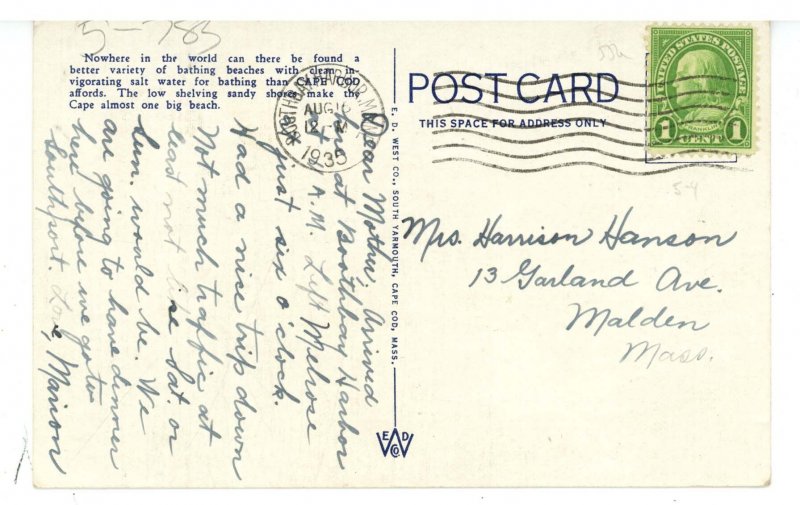 5-785
Nowhere in the world can there be found a
better variety of bathing beaches with clean in-
vigorating salt water for bathing than CAPE COD
affords. The low shelving sandy shores make the
Cape almost one big beach.
BOOTHBAY HARBOR, M
AUG
12 M
1935
POST CARD
THIS SPACE FOR ADDRESS ONLY
UNITED STATES POSTAGE
FRANKLIN
1 CENT 1
5-4
E. D. WEST CO., SOUTH YARMOUTH, CAPE COD, MASS.
E D
W
CO.
Dear Mother, Arrived
here at Boothbay Harbor
at A.M. Left Melrose
just six o'clock.
Had a nice trip down
Not much traffic at
least not like Sat. or
Sun. would be. We
are going to have dinner
here before we go to
Southport. Love, Marion
Mrs. Harrison Hanson
13 Garland Ave.
Malden
Mass.